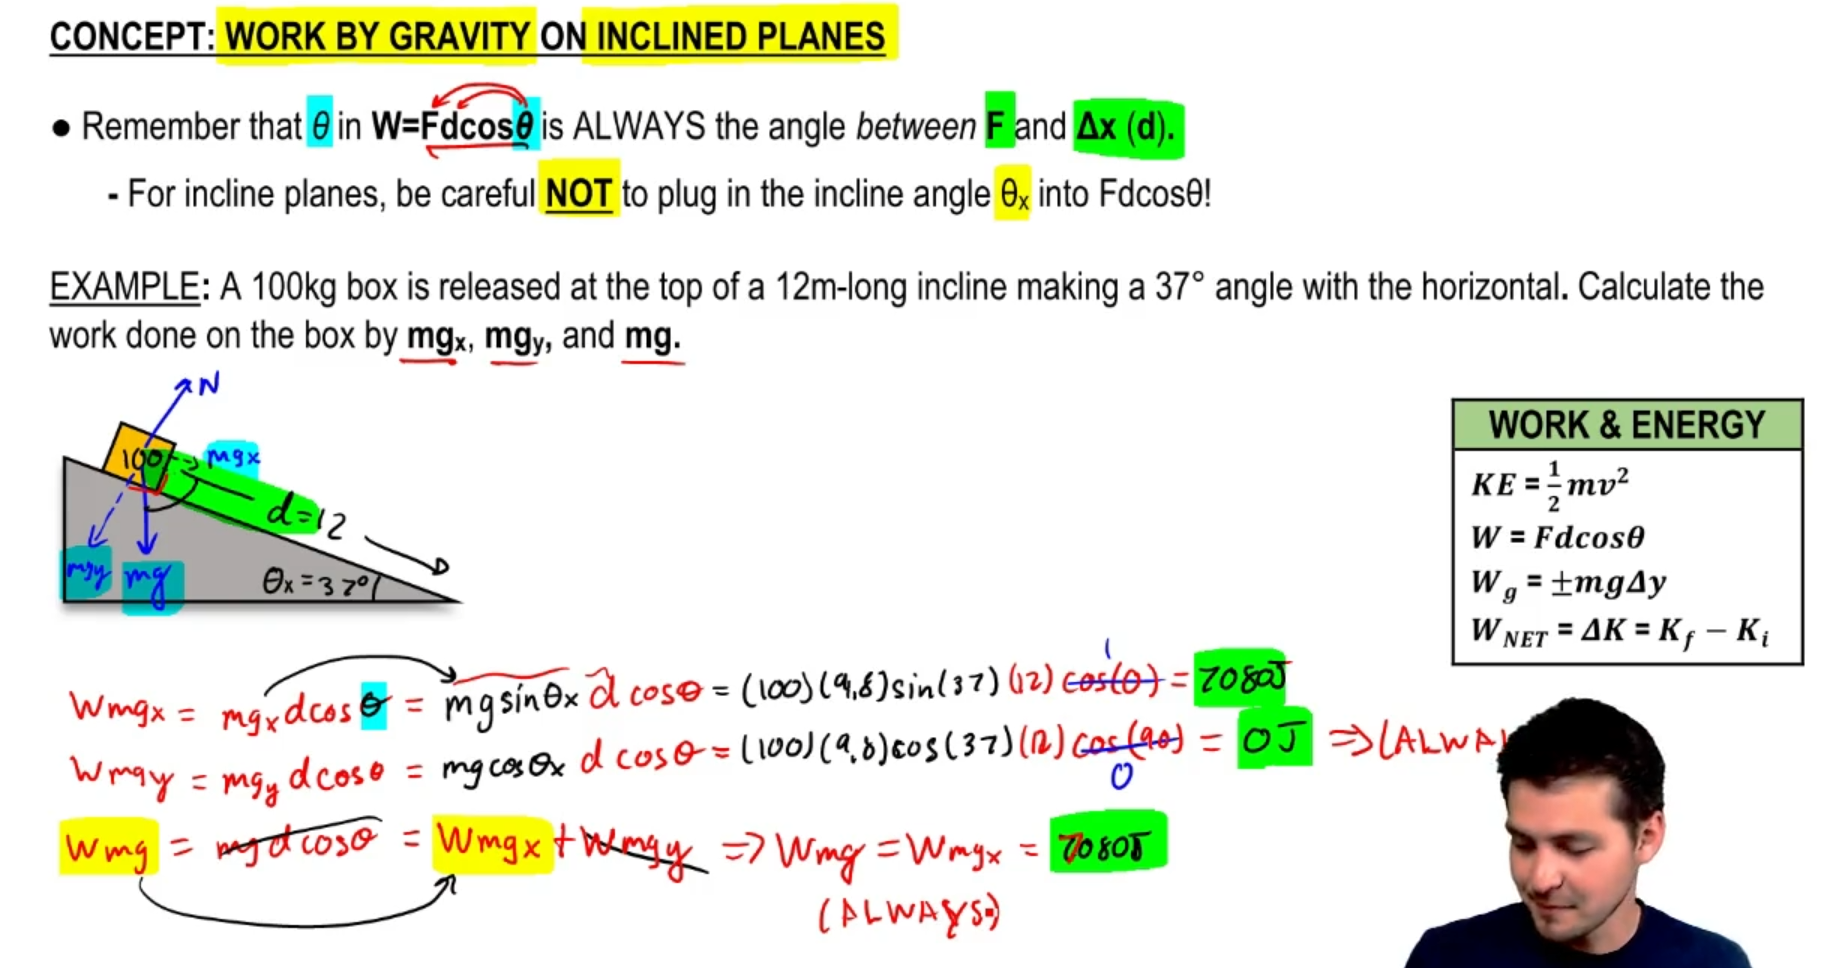 CONCEPT: WORK BY GRAVITY ON INCLINED PLANES
● Remember that θ in W=Fdcosθ is ALWAYS the angle between F and Δx (d).
- For incline planes, be careful NOT to plug in the incline angle θx into Fdcosθ!
EXAMPLE: A 100kg box is released at the top of a 12m-long incline making a 37° angle with the horizontal. Calculate the
work done on the box by mgx, mgy, and mg.
N
100
mgx
d=12
mgy
mg
θx=37°
WORK & ENERGY
KE = 1/2 mv²
W = Fdcosθ
Wg = ±mgΔy
WNET = ΔK = Kf − Ki
Wmgx = mgx dcosθ = mgsinθx d cosθ = (100)(9.8)sin(37)(12) cos(0) = 7080J
1
Wmgy = mgy dcosθ = mgcosθx d cosθ = (100)(9.8)cos(37)(12) cos(90) = 0J ⇒ (ALWA
0
Wmg = mgdcosθ = Wmgx + Wmgy ⇒ Wmg = Wmgx = 7080J
(ALWAYS)